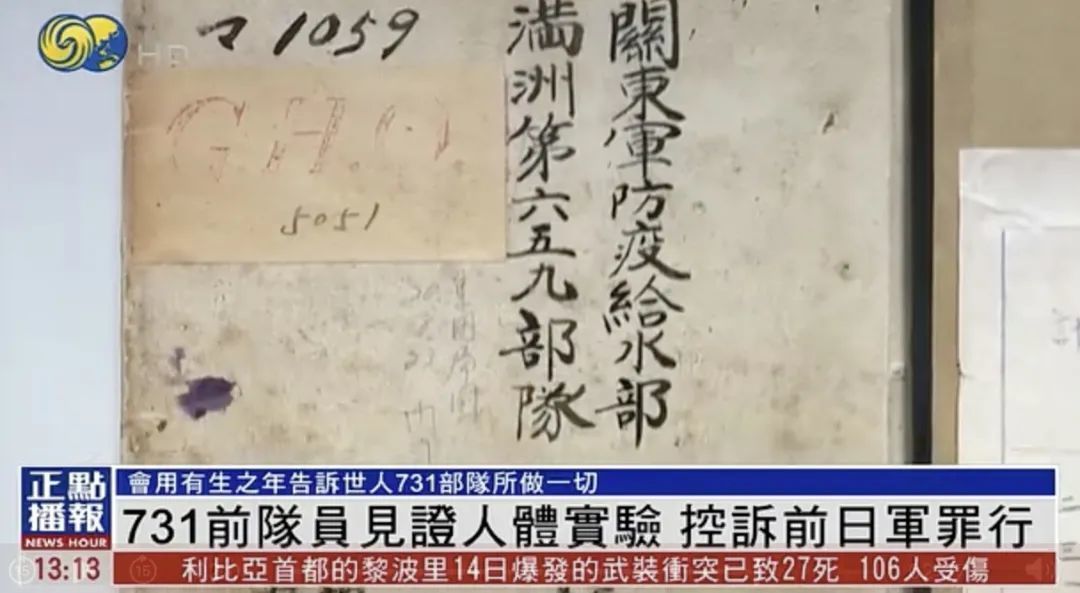 HD
マ1059
G.H.Q
5051
關東軍防疫給水部
満洲第六五九部隊
正點
播報
NEWS HOUR
13:13
會用有生之年告訴世人731部隊所做一切
731前隊員見證人體實驗 控訴前日軍罪行
利比亞首都的黎波里14日爆發的武裝衝突已致27死 106人受傷